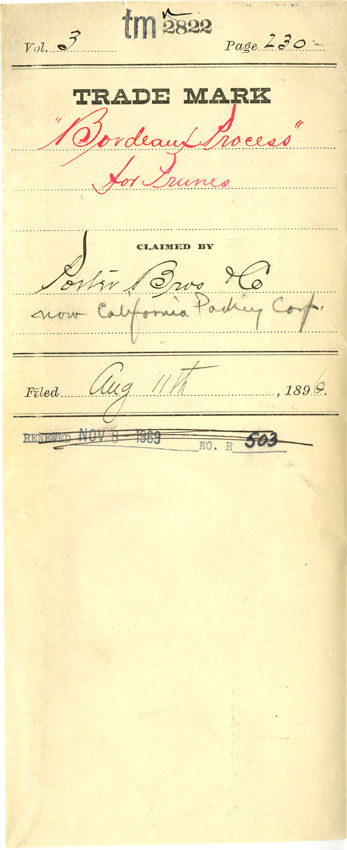 tm 2822
Vol. 3 Page 230
TRADE MARK
"Bordeaux Process"
for Prunes
CLAIMED BY
Porter Bros & Co
now California Packing Corp.
Filed Aug 11th, 1896.
RENEWED NOV 8 - 1969
NO. R 503